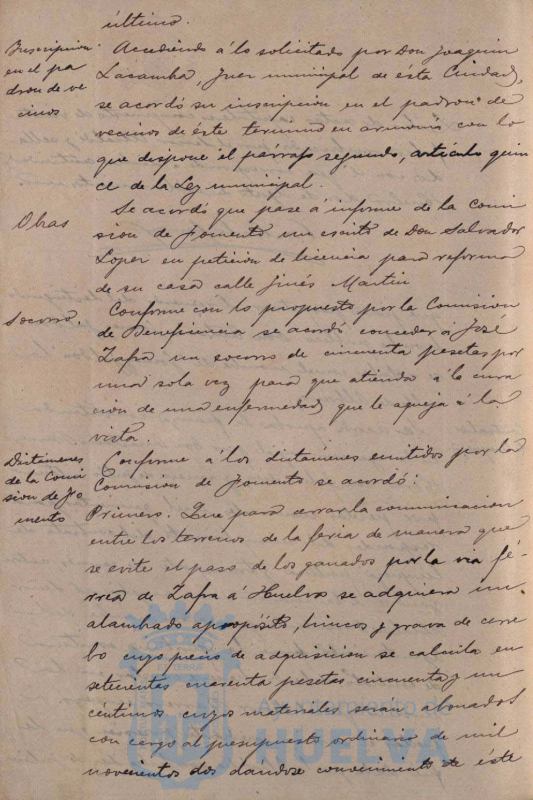 último.
Inscripcion
en el pa
dron de ve
cinos
Accediendo á lo solicitado por Don Joaquin
Lacamba, Juez municipal de ésta Ciudad,
se acordó su inscripcion en el padron de
vecinos de éste termino en armonía con lo
que dispone el párrafo segundo, artículo quin
ce de la Ley municipal.
Obras
Se acordó que pase á informe de la Comi
sion de Fomento un escrito de Don Salvador
Lopez en peticion de licencia para reforma
de su casa calle Ginés Martin
Socorro.
Conforme con lo propuesto por la Comision
de Beneficencia se acordó conceder á José
Zafra un socorro de cincuenta pesetas por
una sola vez para que atienda á la cura
cion de una enfermedad que le aqueja á la
vista.
Dictámenes
de la Comi
sion de Fo
mento
Conforme á los dictámenes emitidos por la
Comision de Fomento se acordó:
Primero. Que para cerrar la comunicacion
entre los terrenos de la feria de manera que
se evite el paso de los ganados por la via fé-
rrea de Zafra á Huelva se adquiera un
alambrado apropósito, hincos y grava
cuyo precio de adquisicion se calcula en
setecientas cuarenta pesetas cincuenta y un
céntimos cuyos materiales serán abonados
con cargo al presupuesto ordinario de mil
novecientos dos dándose conocimiento de éste
Ayuntamiento de
HUELVA